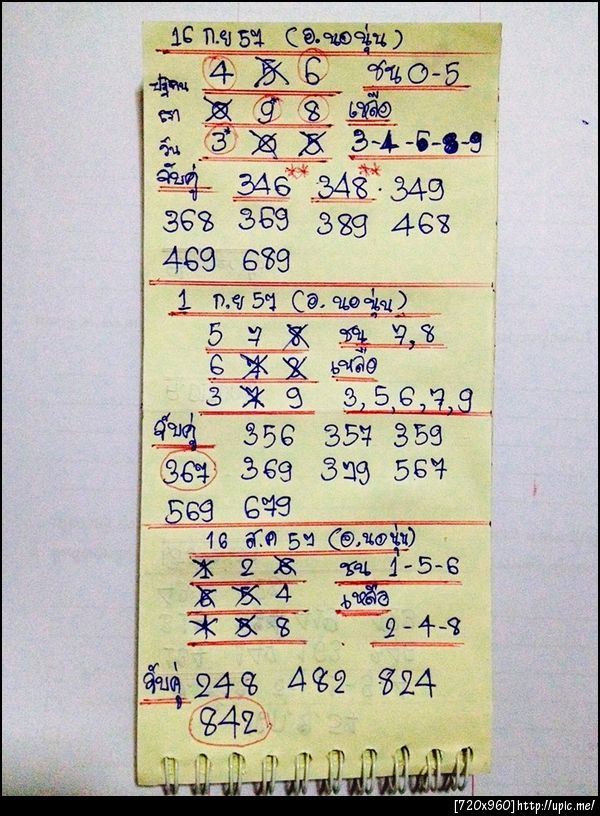 16 ก.ย 57 (อ.นอนุ่น)
4 5 6 ชน 0-5
0 9 8 เหลือ
วัน 3 0 5 3-4-6-8-9
จับคู่ 346 ** 348 ** 349
368 369 389 468
469 689
1 ก.ย 57 (อ.นอนุ่น)
5 7 8 ชน 7,8
6 7 8 เหลือ
3 9 3,5,6,7,9
จับคู่ 356 357 359
367 369 379 567
569 679
16 ส.ค 57 (อ.นอนุ่น)
1 2 ชน 1-5-6
5 4 เหลือ
5 8 2-4-8
จับคู่ 248 482 824
842
[720x960] http://upic.me/